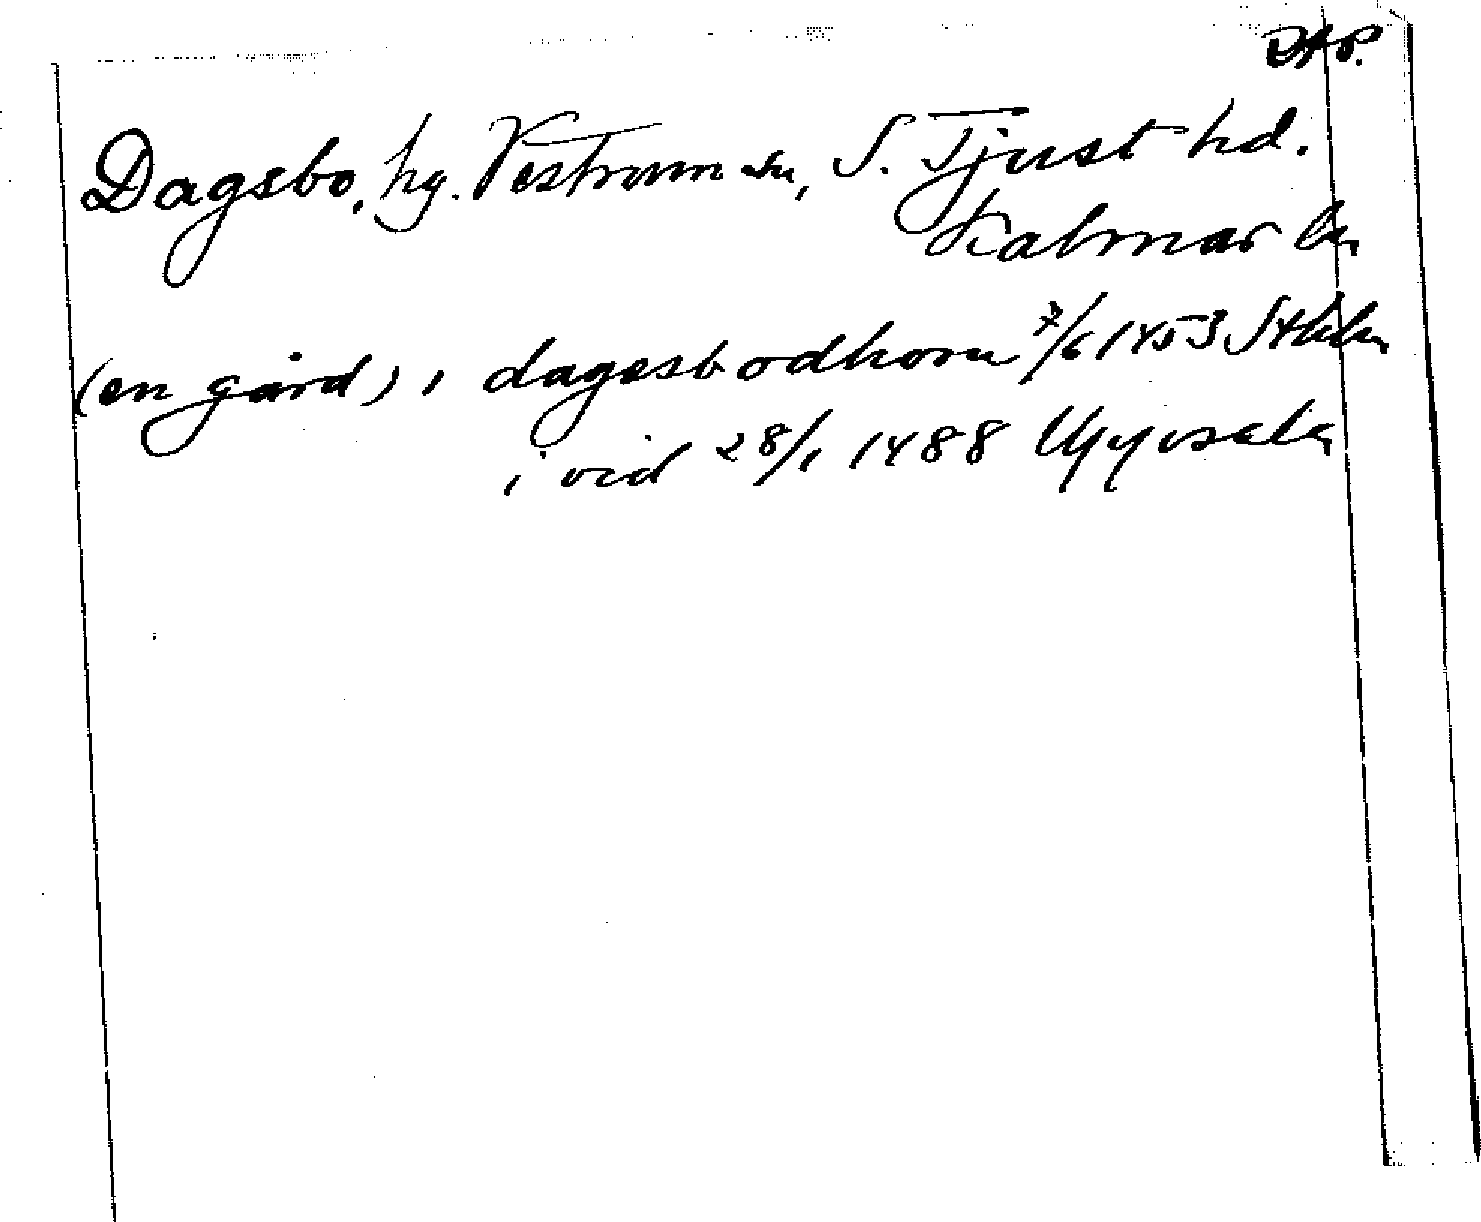 RAP.
Dagsbo, hg. Vestrum sn, S. Tjust hd.
Kalmar ln
(en gård), i dagsbodhom 7/6 1453 Sthlm
i vid 28/1 1488 Uppsala